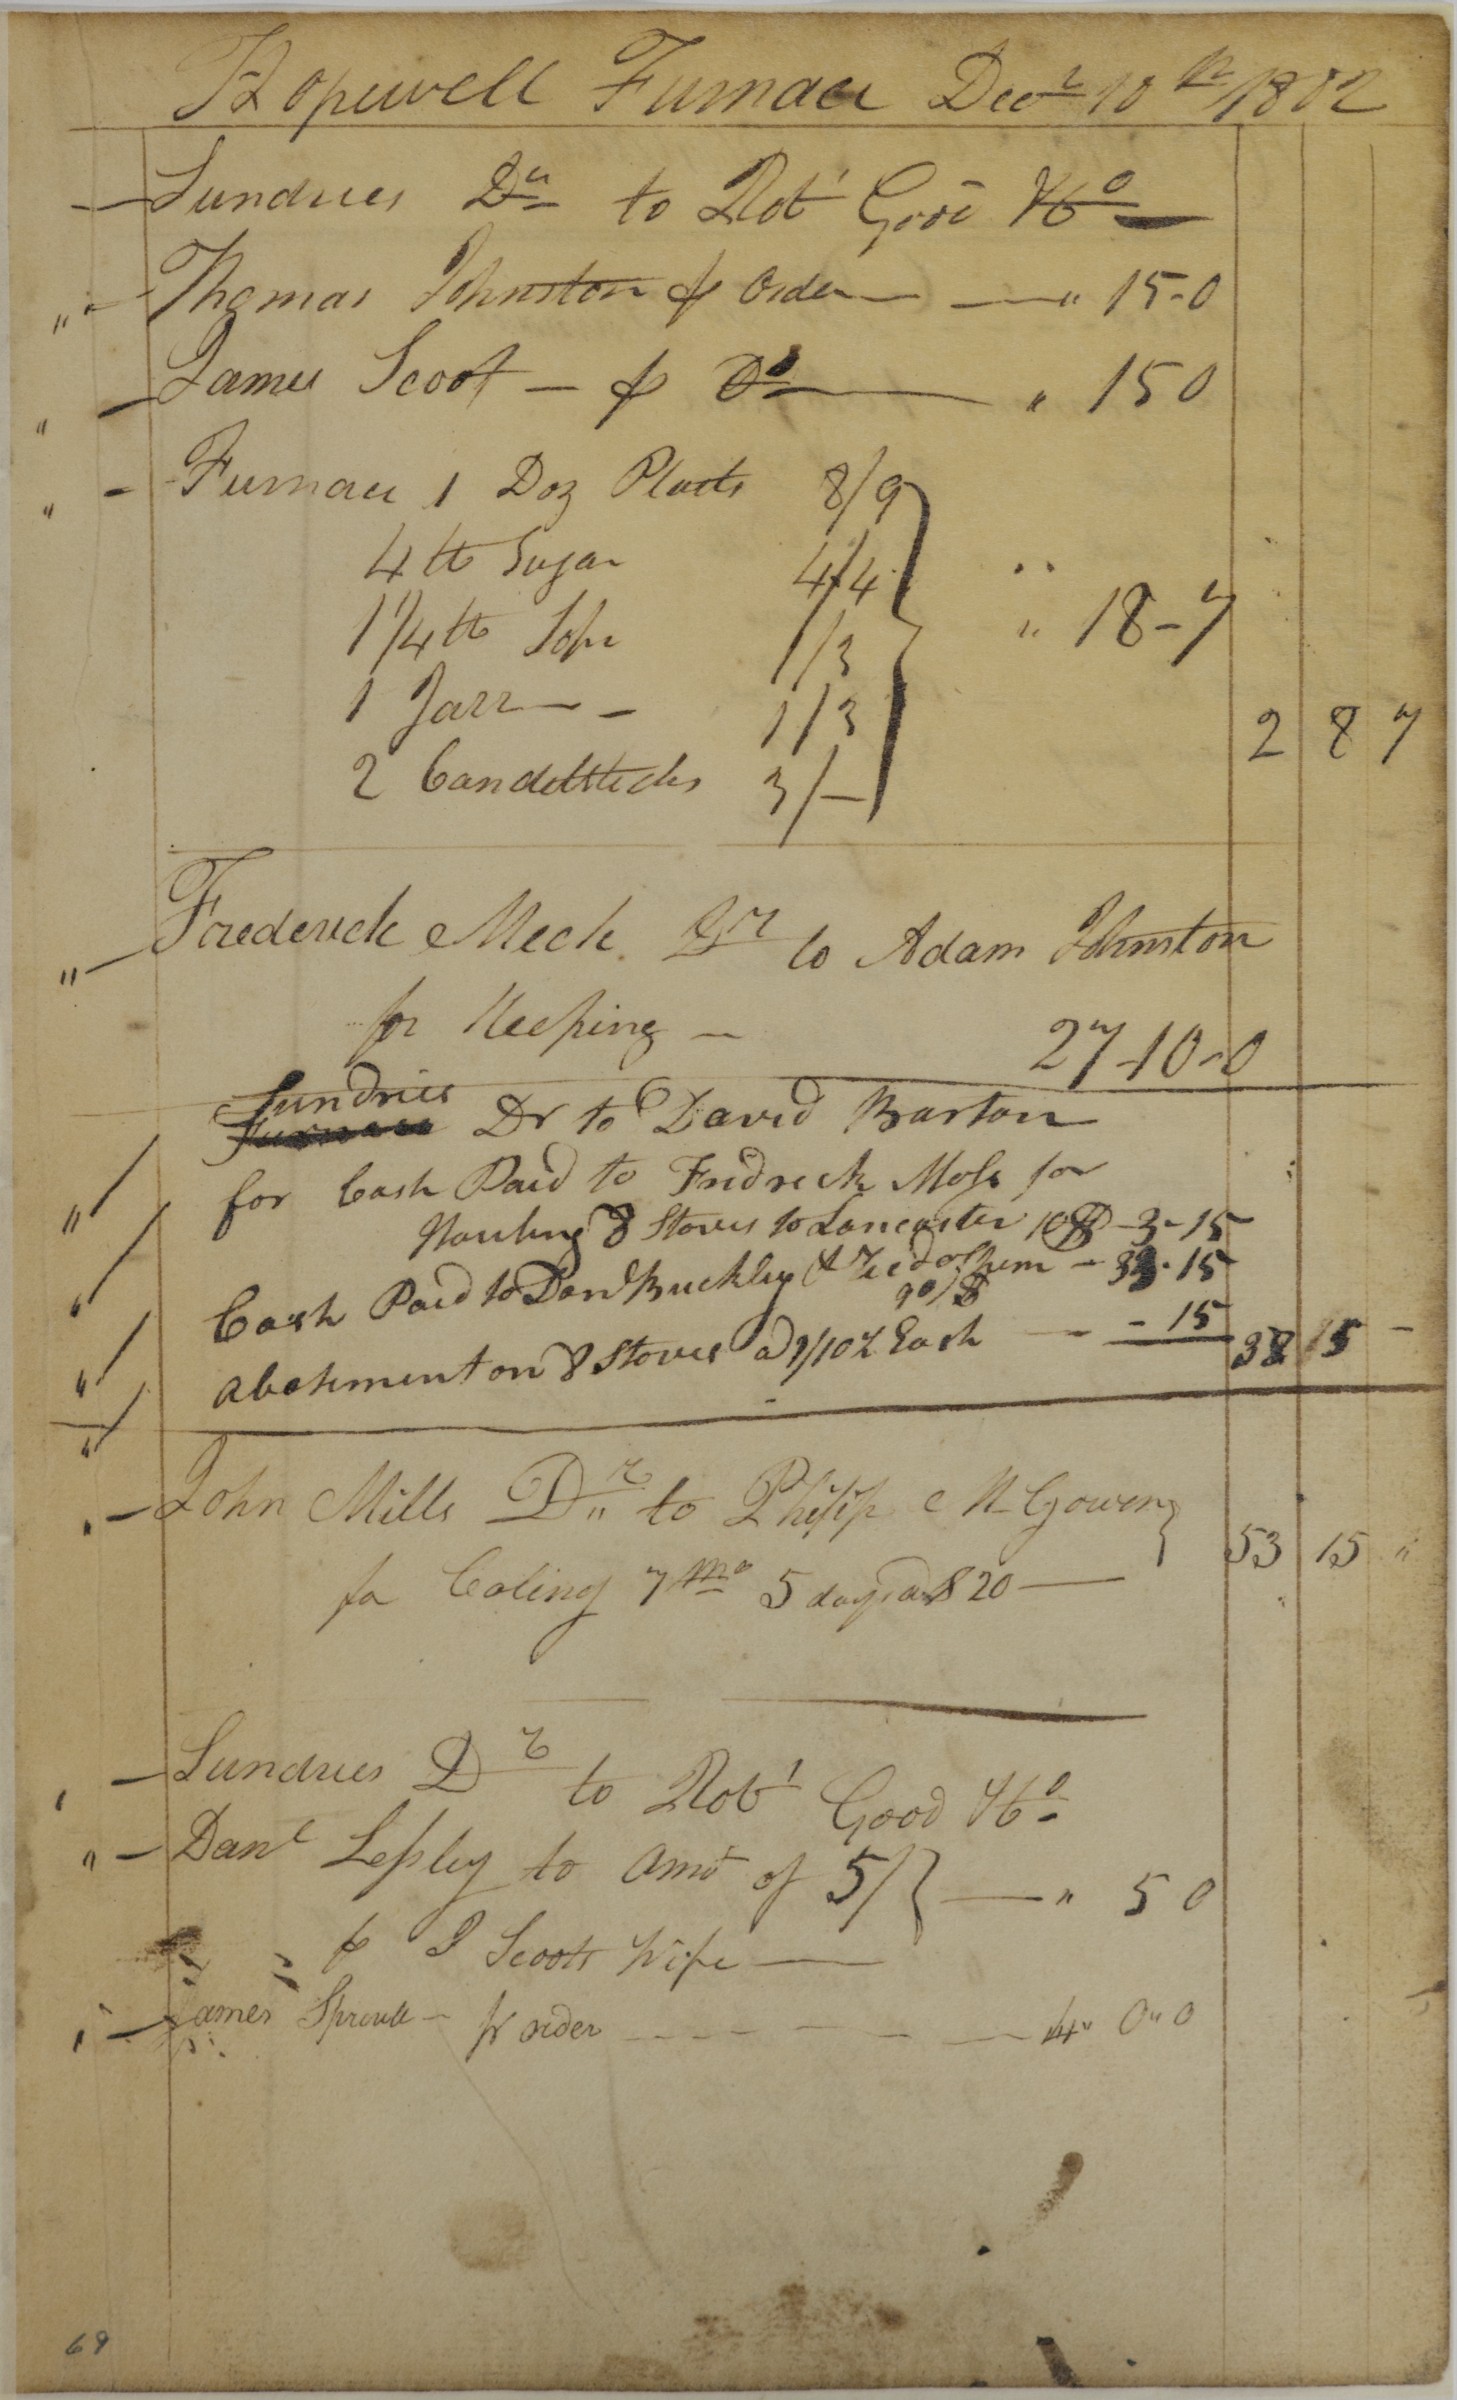 Hopewell Furnace Decr 10th 1802
Sundries Dr to Robt Good & Co
Thomas Johnston pr Order — " 15-0
James Scoot — pr Do — " 15 0
Furnace 1 Doz Plaets 8/9
4 lb Sugar 4/4
1 1/4 lb Sope 1/3
" 18-7
1 Jarr — 1/3
2 8 7
2 Candelsticks 3/—
Frederick Meck Dr to Adam Johnston
for Keeping — 27-10-0
Sundries
Furnace Dr to David Barton
for Cash Paid to Fridreck Moss for
Hauling 8 Stoves to Lancaster 10 - 3-15
Cash Paid to Danl Buckley & of them - 15
Abatement on 8 Stoves a 1/10½ Each — - 15
38 15 -
John Mills Dr to Philip McGowen
53 15 "
for Coling 7 mo 5 days a $ 20 —
Sundries Dr to Robt Good & Co
Danl Lesley to amt of 5/ — " 5 0
pr J Scoots Wife —
James Sproull — pr order — 4" 0" 0
69